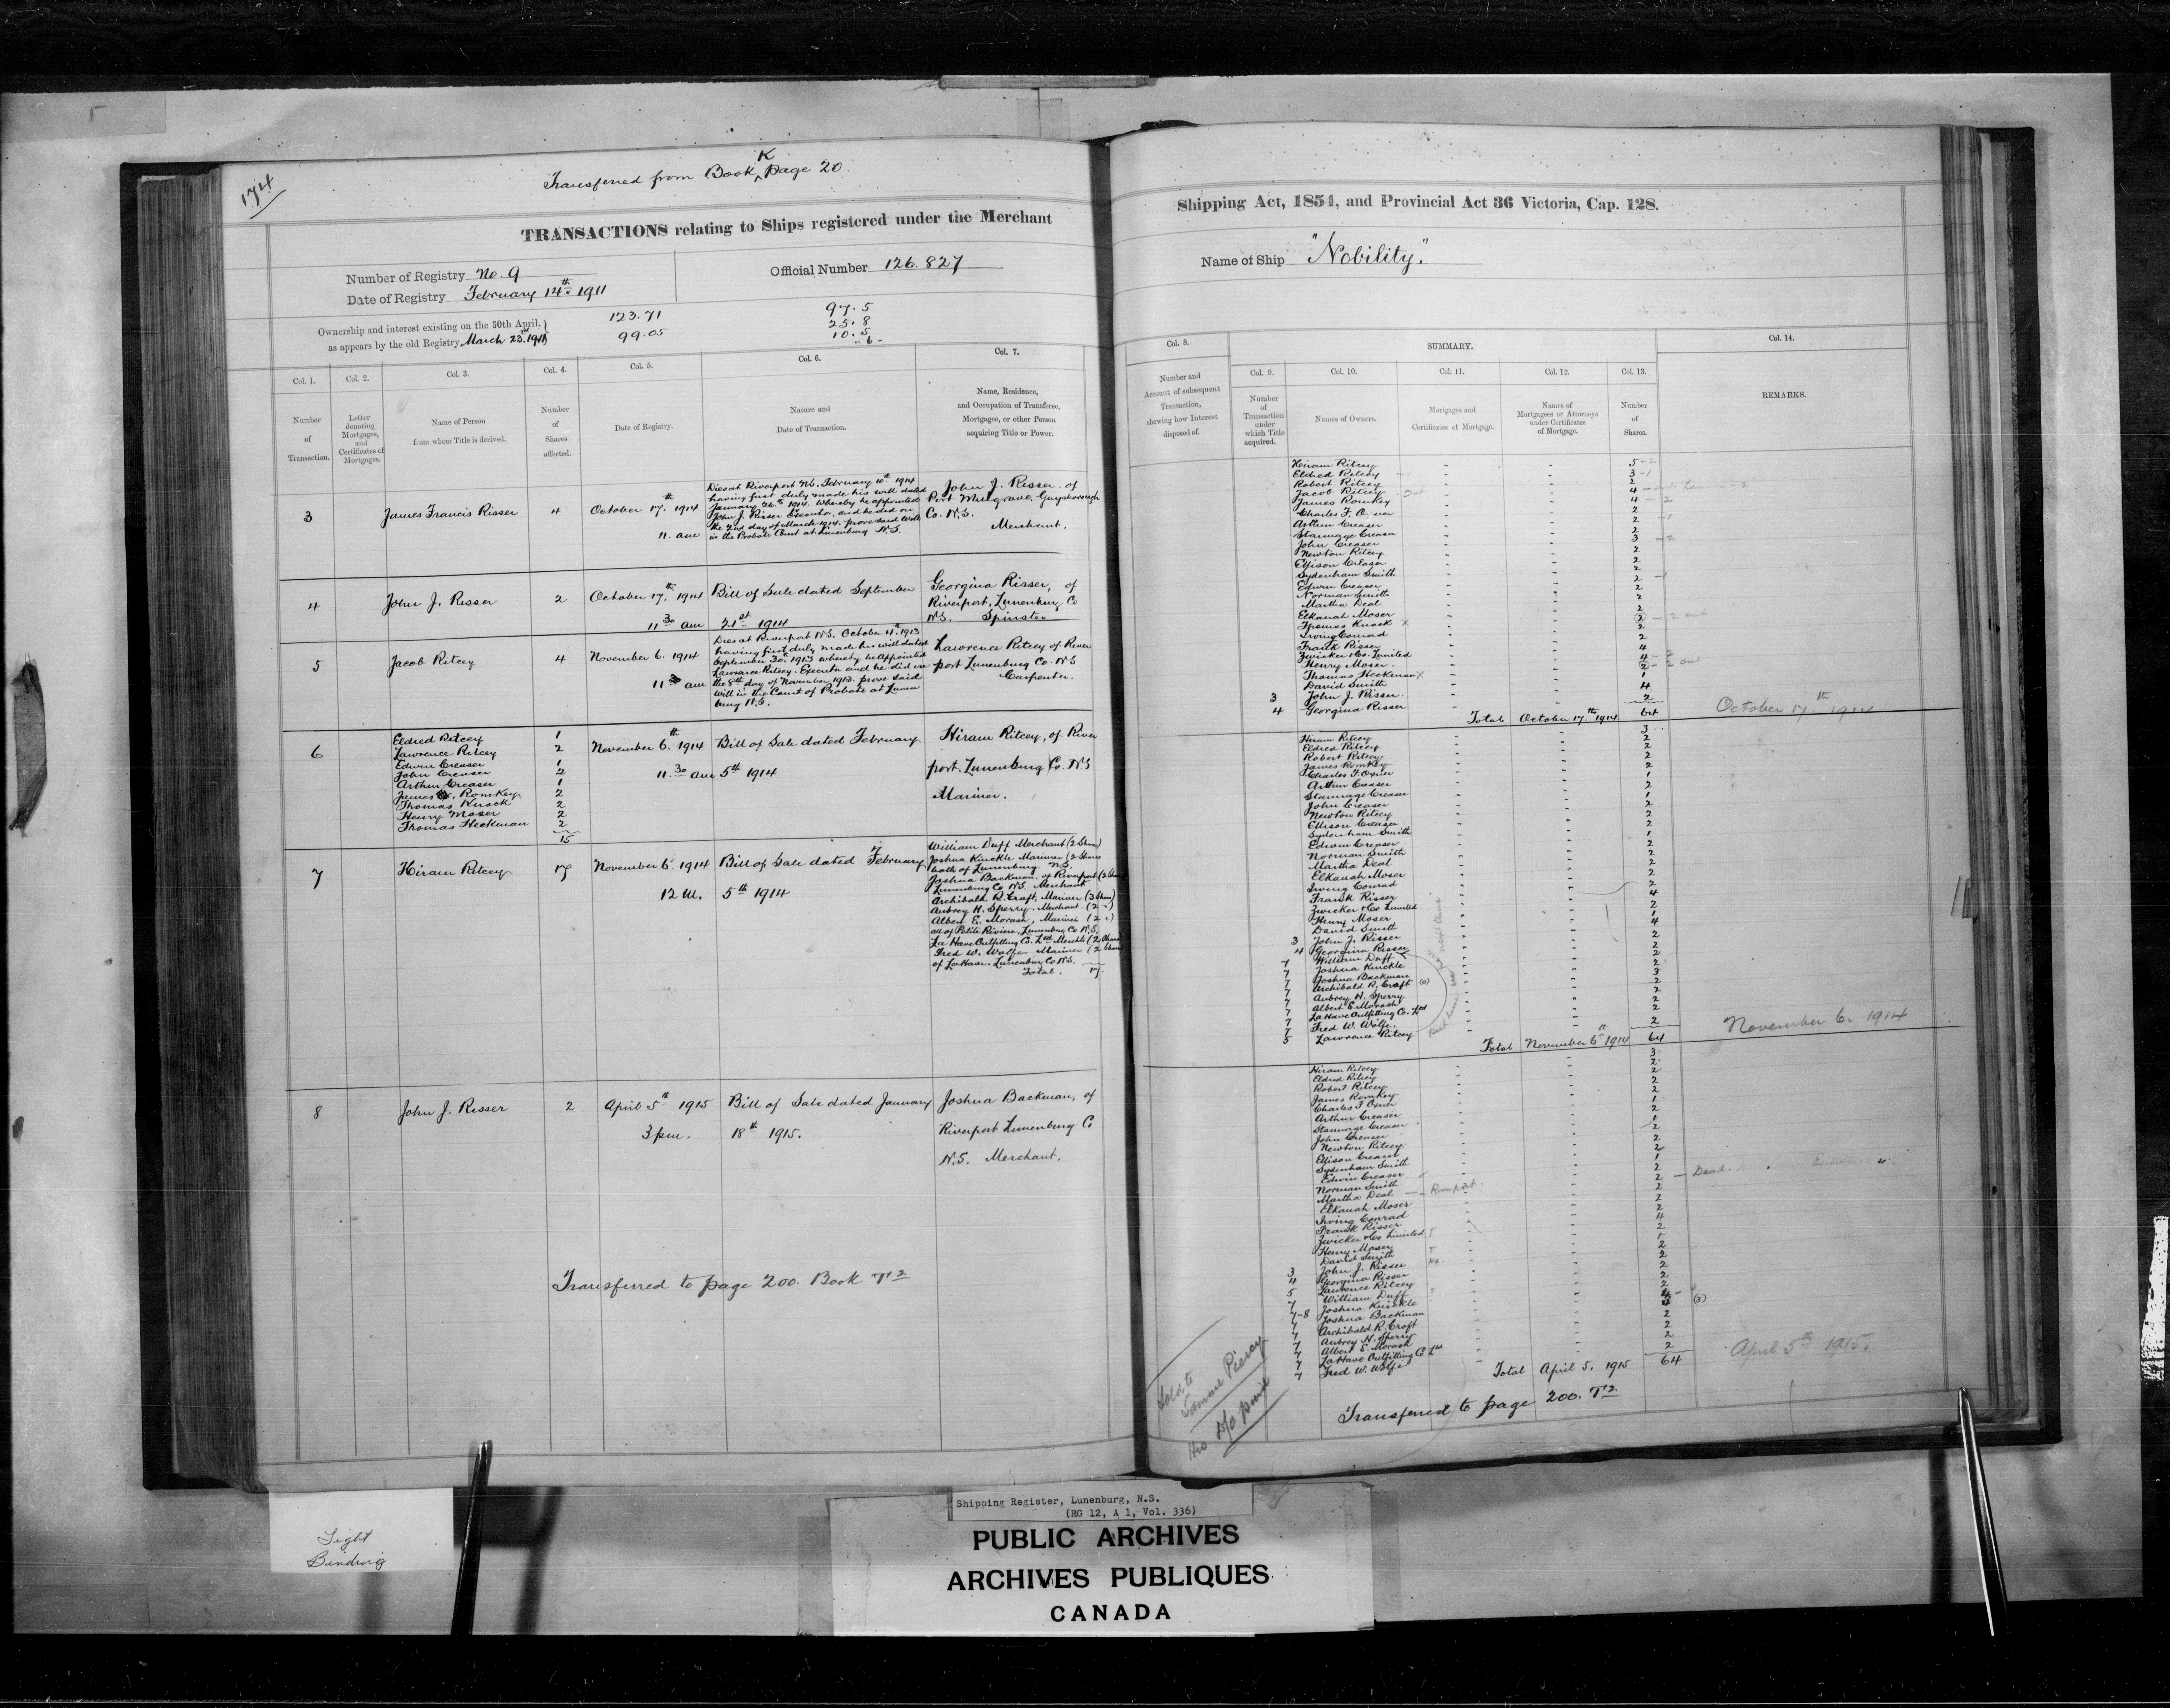 174
Transferred from Book K page 20.
TRANSACTIONS relating to Ships registered under the Merchant
Number of Registry No. 9
Date of Registry February 14th 1911
Official Number 126.827
Ownership and interest existing on the 30th April,
as appears by the old Registry March 23rd
123.71
99.05
97.5
25.8
10.5
Col. 1.
Number
of
Transaction.
Col. 2.
Letter
denoting
Mortgages,
and
Certificates of
Mortgages.
Col. 3.
Name of Person
from whom Title is derived.
Col. 4.
Number
of
Shares
affected.
Col. 5.
Date of Registry.
Col. 6.
Nature and
Date of Transaction.
Col. 7.
Name, Residence,
and Occupation of Transferee,
Mortgagee, or other Person
acquiring Title or Power.
3
James Francis Risser
4
October 17th 1914
11. am
Dies at Riverport N.S. February 10th 1914
having first duly made his will dated
January 26th 1914. Whereby he appointed
John J. Risser Executor, and he did on
the 2nd day of March 1914. prove said Will
in the Probate Court at Lunenburg N.S.
John J. Risser. of
Port Mulgrave, Guysborough
Co. N.S.
Merchant.
4
John J. Risser
2
October 17th 1914
11 30 am
Bill of Sale dated September
21st 1914
Georgina Risser, of
Riverport, Lunenburg Co
N.S. Spinster
5
Jacob Ritcey
4
November 6. 1914
11 30 am
Dies at Riverport N.S. October 4th 1913
having first duly made his will dated
September 30th 1913 whereby he appointed
Lawrence Ritcey. Executor and he did on
the 8th day of November 1913. prove said
will in the Court of Probate at Lunen
burg N.S.
Lawrence Ritcey of River
port Lunenburg Co. N.S
Carpenter.
6
Eldred Ritcey 1
Lawrence Ritcey 2
Edwin Creaser 1
John Creaser 2
Arthur Creaser 1
James Romkey 2
Thomas Knock 2
Henry Moser 2
Thomas Heckman 2
15
November 6th 1914
11.30 am
Bill of Sale dated February
5th 1914
Hiram Ritcey, of River
port. Lunenburg Co. N.S
Mariner.
7
Hiram Ritcey
17
November 6. 1914
12 M.
Bill of Sale dated February
5th 1914
William Duff Merchant (2 Shares)
Joshua Knickle Mariner (2 Shares
both of Lunenburg N.S.
Joshua Backman. of Riverport (2 Shares
Lunenburg Co N.S. Merchant
Archibald R. Craft, Mariner (3 Shares)
Aubrey H. Sperry. Merchant. (2 ")
Albert E. Morash, Mariner (2 ")
all of Petite Riviere, Lunenburg Co N.S.
La Have Outfitting Co. Ltd Merchts (2 Shares)
Fred W. Wolfe. Mariner (2 Shares
of La Have. Lunenburg Co N.S.
Total. 17.
8
John J. Risser
2
April 5th 1915
3 pm.
Bill of Sale dated January
18th 1915.
Joshua Backman, of
Riverport Lunenburg Co
N.S. Merchant.
Transferred to page 200. Book T2
Shipping Act, 1854, and Provincial Act 36 Victoria, Cap. 128.
Name of Ship "Nobility."
Col. 8.
Number and
Account of subsequent
Transaction,
showing how Interest
disposed of.
SUMMARY.
Col. 9.
Number
of
Transaction
under
which Title
acquired.
Col. 10.
Names of Owners.
Col. 11.
Mortgages and
Certificates of Mortgage.
Col. 12.
Names of
Mortgagees or Attorneys
under Certificates
of Mortgage.
Col. 13.
Number
of
Shares.
Col. 14.
REMARKS.
Hiram Ritcey 5
Eldred Ritcey 3
Robert Ritcey 2
Jacob Ritcey 4
James Romkey 4
Charles F. Oxner 2
Arthur Creaser 2
Stannage Creaser 2
John Creaser 3
Newton Ritcey 2
Ellison Creaser 2
Sydenham Smith 2
Edwin Creaser 2
Norman Smith 2
Martha Deal
Elkanah Moser 2
Thomas Knock 2
Irving Conrad 2
Frank Risser 2
Zwicker & Co. Limited 4
Henry Moser. 4
Thomas Heckman 2
David Smith 1
3 John J. Risser. 4
4 Georgina Risser 2
Total October 17th 1914 64
October 17th 1914
Hiram Ritcey 3
Eldred Ritcey 2
Robert Ritcey 2
James Romkey 2
Charles F. Oxner 2
Arthur Creaser 1
Stannage Creaser 2
John Creaser 1
Newton Ritcey 2
Ellison Creaser 2
Sydenham Smith 2
Edwin Creaser 1
Norman Smith 2
Martha Deal 2
Elkanah Moser 2
Irving Conrad 2
Frank Risser 2
Zwicker & Co Limited 4
Henry Moser 2
David Smith 1
3 John J. Risser 4
4 Georgina Risser 2
7 William Duff 2
7 Joshua Knickle 2
7 Joshua Backman
7 Archibald R. Craft 3
7 Aubrey H. Sperry 2
7 Albert E Morash 2
7 La Have Outfitting Co. Ltd 2
7 Fred W. Wolfe.
5 Lawrence Ritcey 2
Total November 6th 1914 64
November 6. 1914
Hiram Ritcey 3
Eldred Ritcey 2
Robert Ritcey 2
James Romkey 2
Charles F Oxner
Arthur Creaser 1
Stannage Creaser 2
John Creaser 1
Newton Ritcey 2
Ellison Creaser 2
Sydenham Smith 2
Edwin Creaser 1
Norman Smith 2
Martha Deal Riverport 2
Dead.
Elkanah Moser 2
Irving Conrad 2
Frank Risser 2
Zwicker & Co Limited 4
Henry Moser 2
David Smith
3 John J. Risser 2
4 Georgina Risser 2
5 Lawrence Ritcey 2
7 William Duff 2
7 Joshua Knickle 2
7-8 Joshua Backman 4
7 Archibald R. Craft (3)
7 Aubrey H. Sperry 2
7 Albert E. Morash 2
7 La Have Outfitting Co Ltd 2
7 Fred W. Wolfe 2
Total April 5. 1915 64
April 5th 1915.
Transferred to page 200. T2
Sold to
Piercy
Tight
Binding
Shipping Register, Lunenburg, N.S.
(RG 12, A 1, Vol. 336)
PUBLIC ARCHIVES
ARCHIVES PUBLIQUES
CANADA